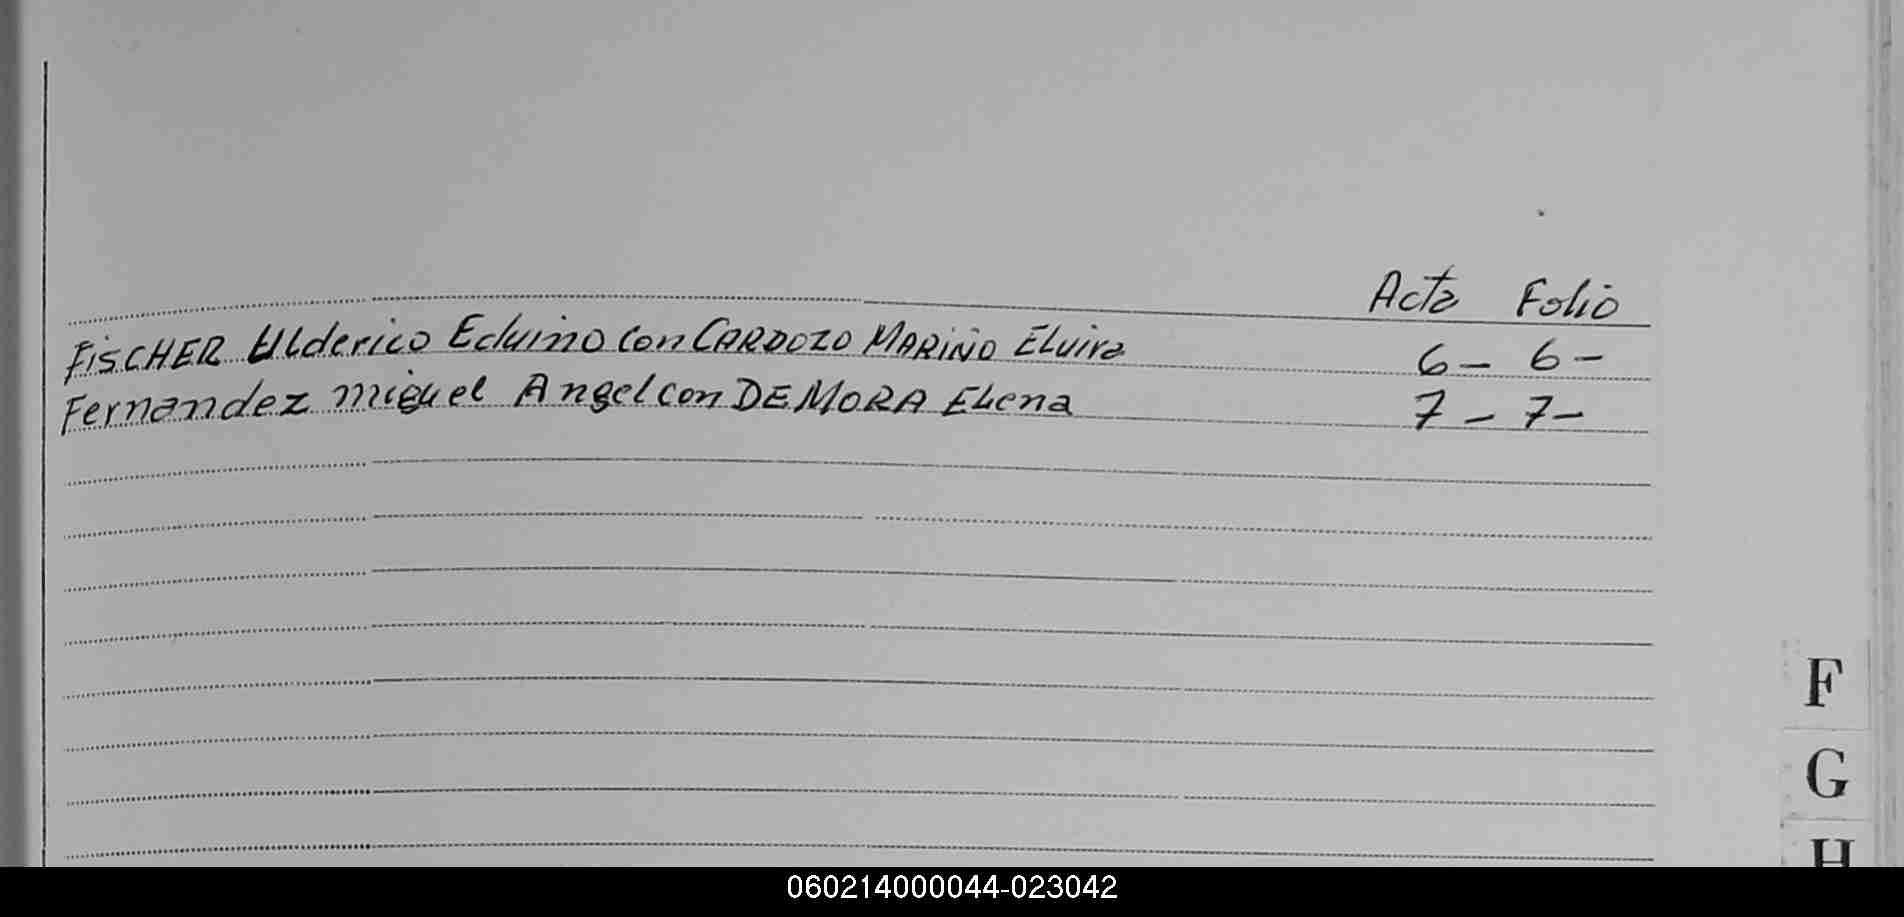 Acta Folio
FISCHER Ulderico Eduino con CARDOZO MARIÑO Elvira 6 - 6 -
Fernandez miguel Angel con DE MORA Elena 7 - 7 -
F
G
H
060214000044-023042